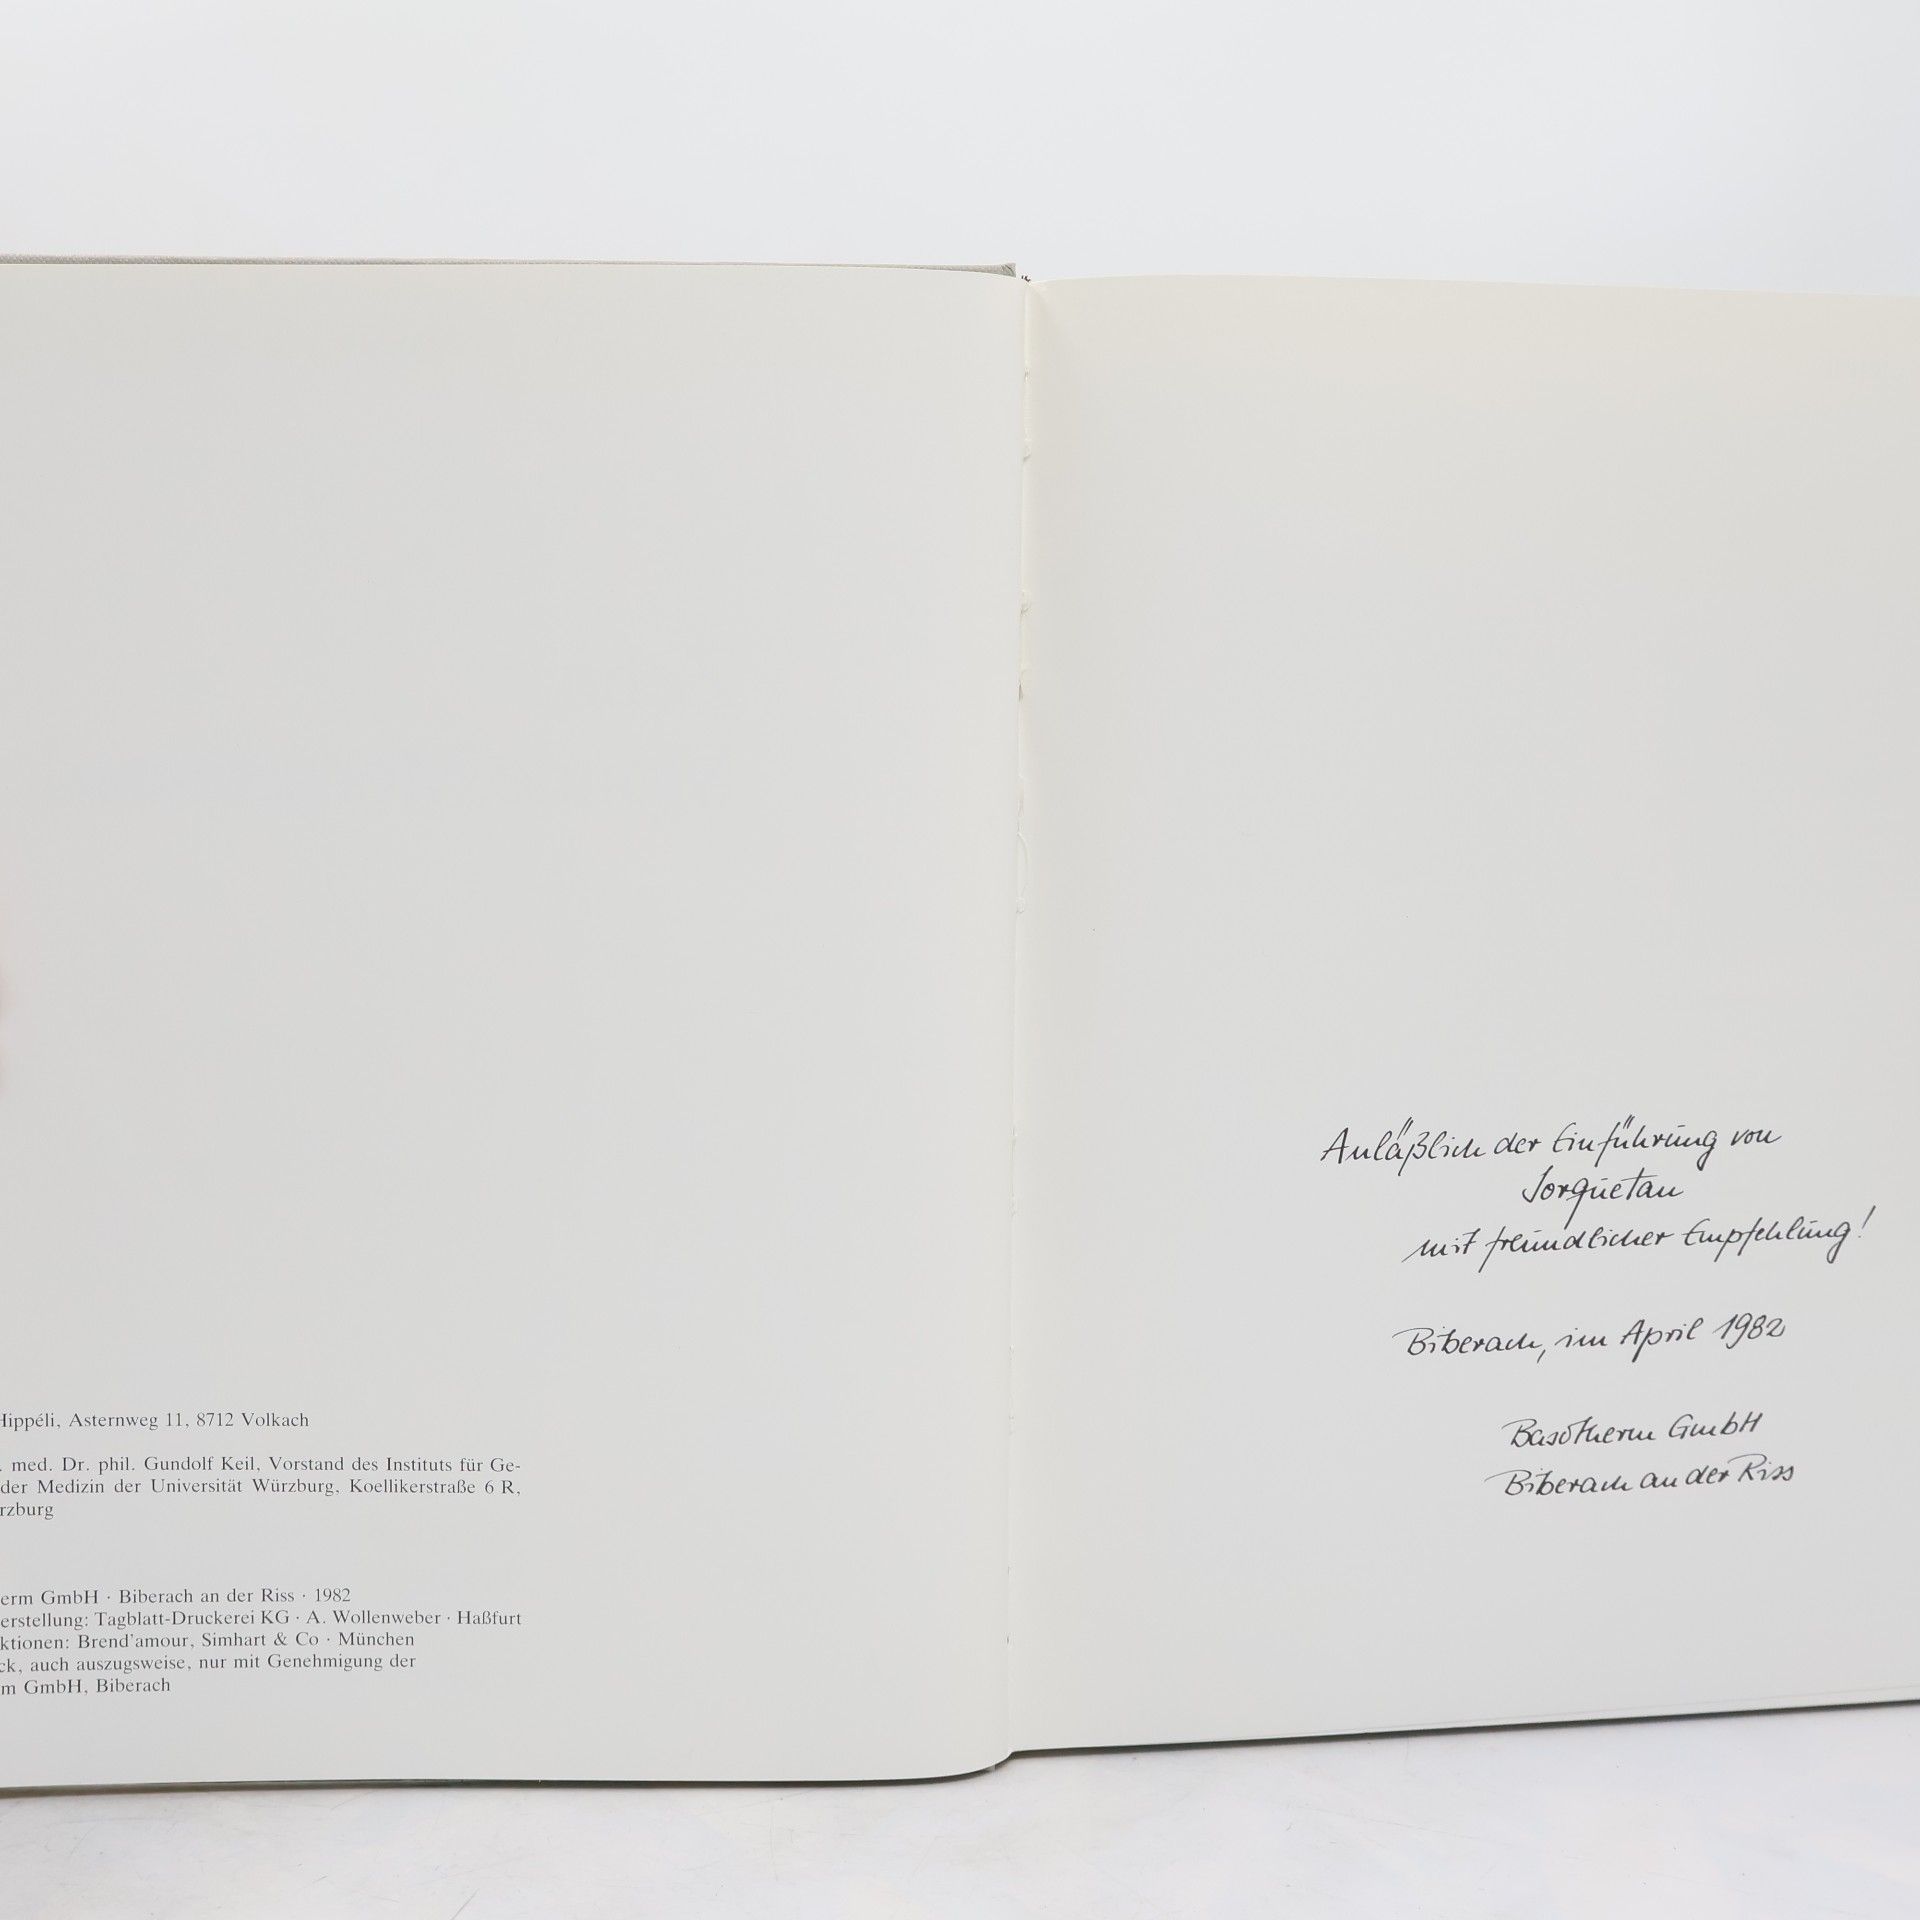 Hippéli, Asternweg 11, 8712 Volkach
. med. Dr. phil. Gundolf Keil, Vorstand des Instituts für Ge-
der Medizin der Universität Würzburg, Koellikerstraße 6 R,
rzburg
erm GmbH · Biberach an der Riss · 1982
erstellung: Tagblatt-Druckerei KG · A. Wollenweber · Haßfurt
ktionen: Brend'amour, Simhart & Co · München
ck, auch auszugsweise, nur mit Genehmigung der
m GmbH, Biberach
Anläßlich der Einführung von
Sorquetan
mit freundlicher Empfehlung!
Biberach, im April 1982
Basotherm GmbH
Biberach an der Riss